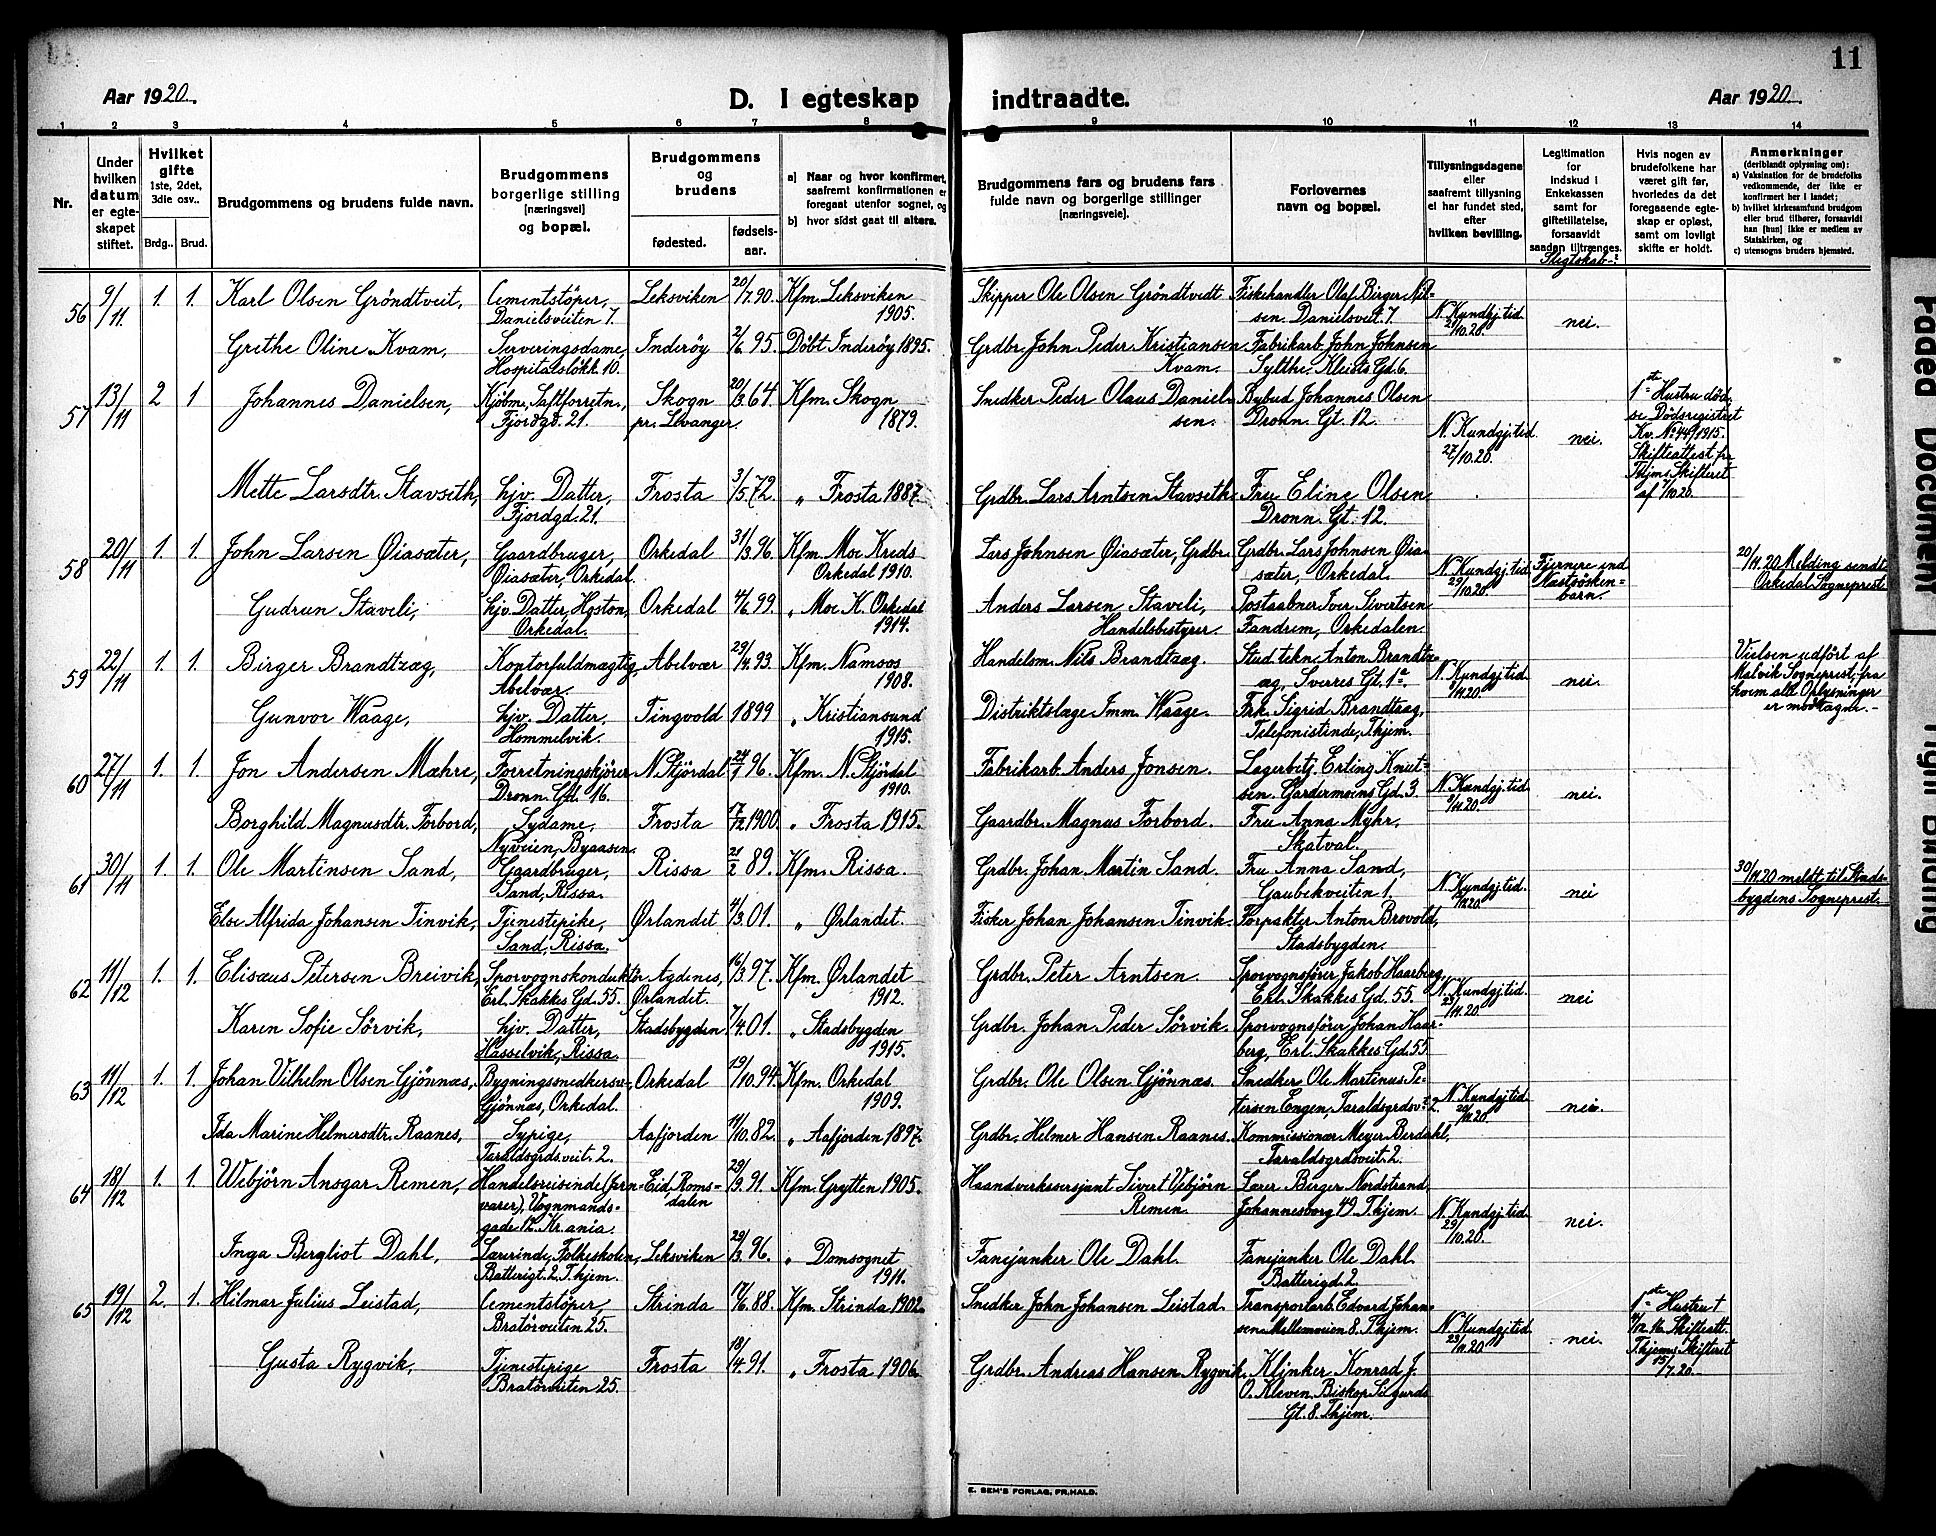 11
Aar 1920.
D. I egteskap indtraadte.
Aar 1920.
1 2 3 4 5 6 7 8 9 10 11 12 13 14
Nr.
Under hvilken datum er egte-skapet stiftet.
Hvilket gifte 1ste, 2det, 3die osv..
Brdg.. Brud.
Brudgommens og brudens fulde navn.
Brudgommens borgerlige stilling [næringsvei] og bopæl.
Brudgommens og brudens
fødested.
fødsels-aar.
a) Naar og hvor konfirmert, saafremt konfirmationen er foregaat utenfor sognet, og
b) hvor sidst gaat til alters.
Brudgommens fars og brudens fars fulde navn og borgerlige stillinger [næringsveie].
Forlovernes navn og bopæl.
Tillysningsdagene eller saafremt tillysning ei har fundet sted, efter hvilken bevilling.
Legitimation for Indskud i Enkekassen samt for giftetillatelse, forsaavidt saadan tiltrænges.
Slegtskab-:
Hvis nogen av brudefolkene har været gift før, hvorledes da det foregaaende egte-skap er opløst, samt om lovligt skifte er holdt.
Anmerkninger (deriblandt oplysning om):
a) Vaksination for de brudefolks vedkommende, der ikke er konfirmert her i landet;
b) hvilket kirkesamfund brudgom eller brud tilhører, forsaavidt han [hun] ikke er medlem av Statskirken, og
c) utensogns bruders hjemsted.
56 9/11 1. 1. Karl Olsen Gröndtveit, Cementstöper, Danielsveiten 7. Leksviken 20/7.90. Kfm. Leksviken 1905. Skipper Ole Olsen Gröndtvedt Fiskehandler Olaf Birger Nilsen. Danielsveit. 7. N. Kundgj.tid. 21/10.20. nei.
Grethe Oline Kvam, Serveringsdame, Hospitalslökk. 10. Inderöy 2/6 95. Döbt Inderöy 1895. Grdbr. John Peder Kristiansen Kvam. Fabrikarb. John Johnsen Sylthe, Kleists Gd. 6.
57 13/11 2 1 Johannes Danielsen, Kjöbm., Saftforretn., Fjordgd. 21. Skogn pr. Levanger. 20/3 64. Kfm. Skogn 1879. Snedker Peder Olaus Danielsen. Bybud Johannes Olsen Dronn. Gt. 12. N. Kundgj.tid. 27/10.20. nei. 1ste Hustru död, se Dödsregistret Kv. No 44/1915. Skifteattest fra Thjms Skifteret af 7/10 20.
Mette Larsdtr. Stavseth, hjv. Datter, Fjordgd. 21. Frosta 3/5.72. „ Frosta 1887. Grdbr. Lars Arntsen Stavseth. Fru Eline Olsen Dronn. Gt. 12.
58 20/11 1. 1. John Larsen Øiasæter, Gaardbruger, Øiasæter, Orkedal. Orkedal 31/3.96. Kfm. Moe Kreds Orkedal 1910. Lars Johnsen Øiasæter, Grdbr. Grdbr. Lars Johnsen Øiasæter, Orkedal. N. Kundgj.tid. 29/10.20. Fjernere end Næstsösken-barn. 20/11.20 Melding sendt Orkedal Sogneprest.
Gudrun Staveli, hjv. Datter, Hgston, Orkedal. Orkedal 4/6.99. „ Moe K. Orkedal 1914. Anders Larsen Staveli, Handelsbestyrer. Postaabner Iver Sivertsen Fandrem, Orkedalen.
59 22/11 1. 1. Birger Brandtzæg, Kontorfuldmægtig, Abelvær. Abelvær 29/4.93. Kfm. Namsos 1908. Handelsm. Nils Brandtzæg. Stud. tekn. Anton Brandtzæg, Sverres Gt. 1a. N. Kundgj.tid. nei. Vielsen udfört af Malvik Sogneprest, fra hvem all Oplysninger er modtagne.-
Gunvor Waage, hjv. Datter, Hommelvik. Tingvold 1899 „ Kristiansund 1915. Distriktslæge Imm. Waage. Frk. Sigrid Brandtzæg, Telefonistinde, Thjem.
60 27/11 1. 1. Jon Andersen Mæhre, Forretningskjörer Dronn. Gt. 16. N. Stjördal 24/1 96. Kfm. N. Stjördal 1910. Fabrikarb. Anders Jonsen. Lagerbetj. Erling Knutsen. Gardermoens Gd. 3. N. Kundgj.tid. nei.
Borghild Magnusdtr. Forbord, Sydame, Nyveien, Byaasen. Frosta 17/12 1900. „ Frosta 1915. Gaardbr. Magnus Forbord. Fru Anna Myhr, Skatval.
61 30/11 1. 1. Ole Martinsen Sand, Gaardbruger, Sand, Rissa. Rissa 21/2 89. Kfm. Rissa. Grdbr. Johan Martin Sand. Fru Anna Sand, Gaubekveiten 1. N. Kundgj.tid. nei 30/11.20 meldt til Stads-bygdens Sogneprest.
Else Alfrida Johansen Tinvik, Tjenestepike, Sand, Rissa. Ørlandet 4/3.01. „ Ørlandet. Fisker Johan Johansen Tinvik. Forpakter Anton Brovold, Stadsbygden.
62 11/12 1. 1. Elisæus Petersen Breivik, Sporvognskonduktör Erl. Skakkes Gd. 55. Agdenes, Ørlandet. 16/3 97. Kfm. Ørlandet 1912. Grdbr. Peter Arntsen. Sporvognsförer Jakob Haarberg, Erl. Skakkes Gd. 55. N. Kundgj.tid. 23/11.20 nei
Karen Sofie Sörvik, hjv. Datter, Hasselvik, Rissa. Stadsbygden 7/4.01. „ Stadsbygden 1915. Grdbr. Johan Peder Sörvik. Sporvognsförer Johan Haarberg, Erl. Skakkes Gd. 55.
63 11/12 1. 1. Johan Vilhelm Olsen Gjönnæs, Bygningssnedkersv., Gjönnæs, Orkedal. Orkedal 19/10.94. Kfm. Orkedal 1909. Grdbr. Ole Olsen Gjönnæs. Snedker Ole Martinus Petersen Engen, Taraldsgrdsvt. 2. N. Kundgj.tid. nei.
Ida Marine Helmersdtr. Raanes, Sypige, Taraldsgrds.veit. 2. Aafjorden 11/10.82. „ Aafjorden 1897. Grdbr. Helmer Hansen Raanes. Kommissionær Meyer Berdahl, Taraldsgrdsveit. 2.
64 18/12 1. 1. Webjörn Ansgar Remen, Handelsreisende (jernvarer), Vognmandsgade Kr.ania. Eid, Romsdalen 29/3.91. Kfm. Grytten 1905. Haandverkersersjant Sivert Vebjörn Remen. Lærer Birger Nordstrand Johannesborg 49 Thjem. N. Kundgj.tid. 29/10.20. nei.
Inga Bergliot Dahl, Lærerinde, Folkeskolen, Batterigt. 2, Thjem. Leksviken 29/3 96. „ Domsognet 1911. Fanejunker Ole Dahl. Fanejunker Ole Dahl. Batterigd. 2.
65 19/12 2. 1. Hilmar Julius Leistad, Cementstöper, Bratörveiten 25. Strinda 17/6.88. Kfm. Strinda 1902. Snedker John Johansen Leistad. Transportarb. Edvard Johansen Mellemveien 8. Thjem. N. Kundgj.tid. 23/11.20 nei. 1ste Hustru † 16. Skifteatt. Thjems Skifteret 15/7.20.-
Gusta Rygvik, Tjenestepige Bratörveiten 25. Frosta 18/4.91. „ Frosta 1906. Grdbr. Andreas Hansen Rygvik. Klinker Konrad J. O. Kleven, Biskop Sigurds Gt. 8. Thjem.
E. SEM'S FORLAG, FR.HALD.
Faded Document
Tight Binding